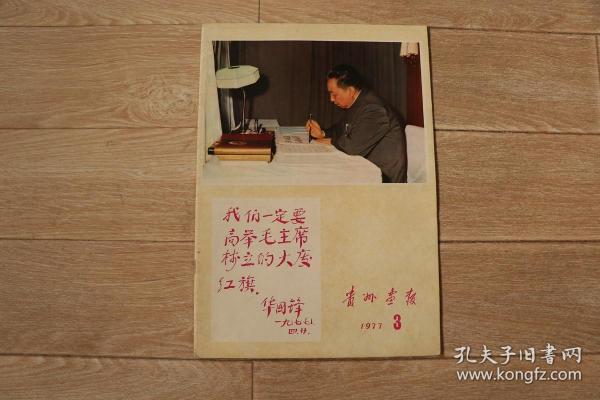 我们一定要
高举毛主席
树立的大庆
红旗。
华国锋
一九七七、
四、廿、
贵州画报
1977 3
孔夫子旧书网
www.kongfz.com